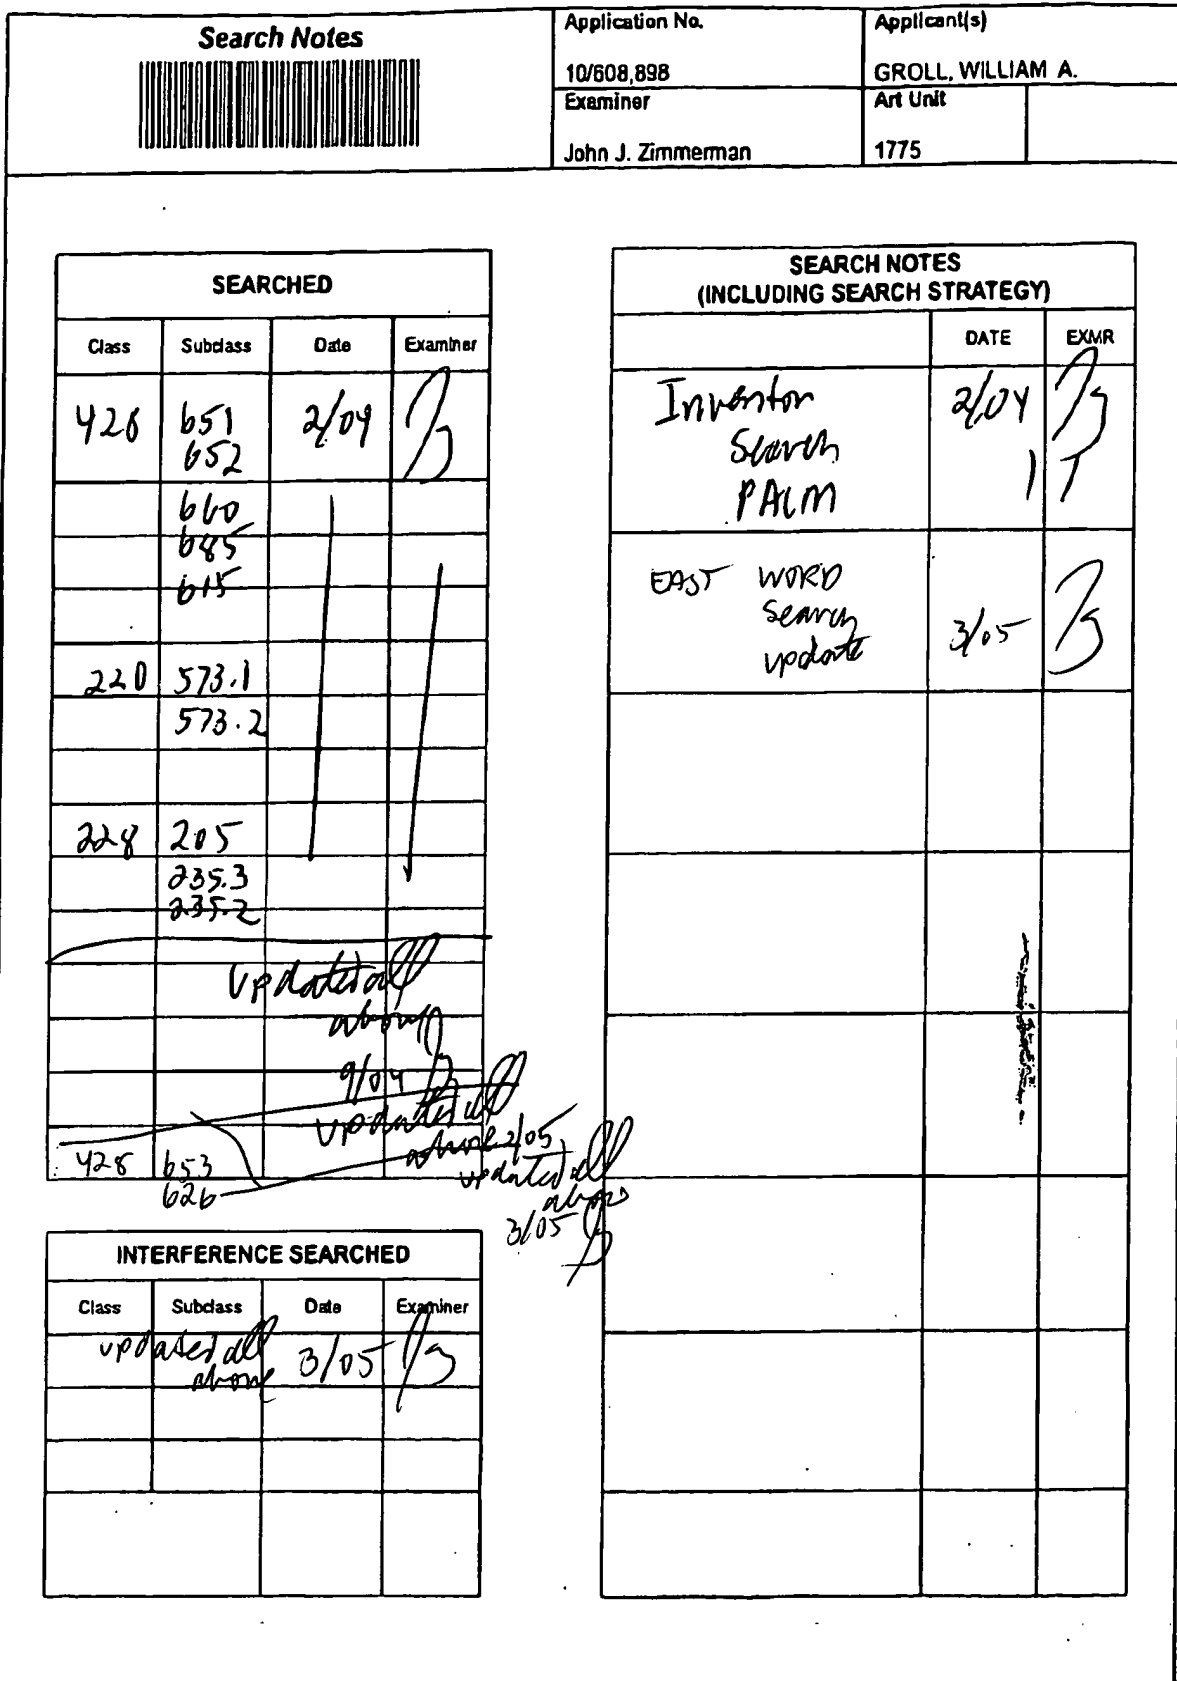 Search Notes
Application No.
10/608,898
Applicant(s)
GROLL, WILLIAM A.
Examiner
John J. Zimmerman
Art Unit
1775
SEARCHED
Class Subclass Date Examiner
428 651 2/04
652
660
685
615
220 573.1
573.2
228 205
235.3
235.2
updated all
above
9/04
updated all
above 2/05
428 653
626
updated all
above
3/05
INTERFERENCE SEARCHED
Class Subclass Date Examiner
updated all
above 3/05
SEARCH NOTES
(INCLUDING SEARCH STRATEGY)
DATE EXMR
Inventor 2/04
Search
PALM
EAST WORD
Search
update 3/05